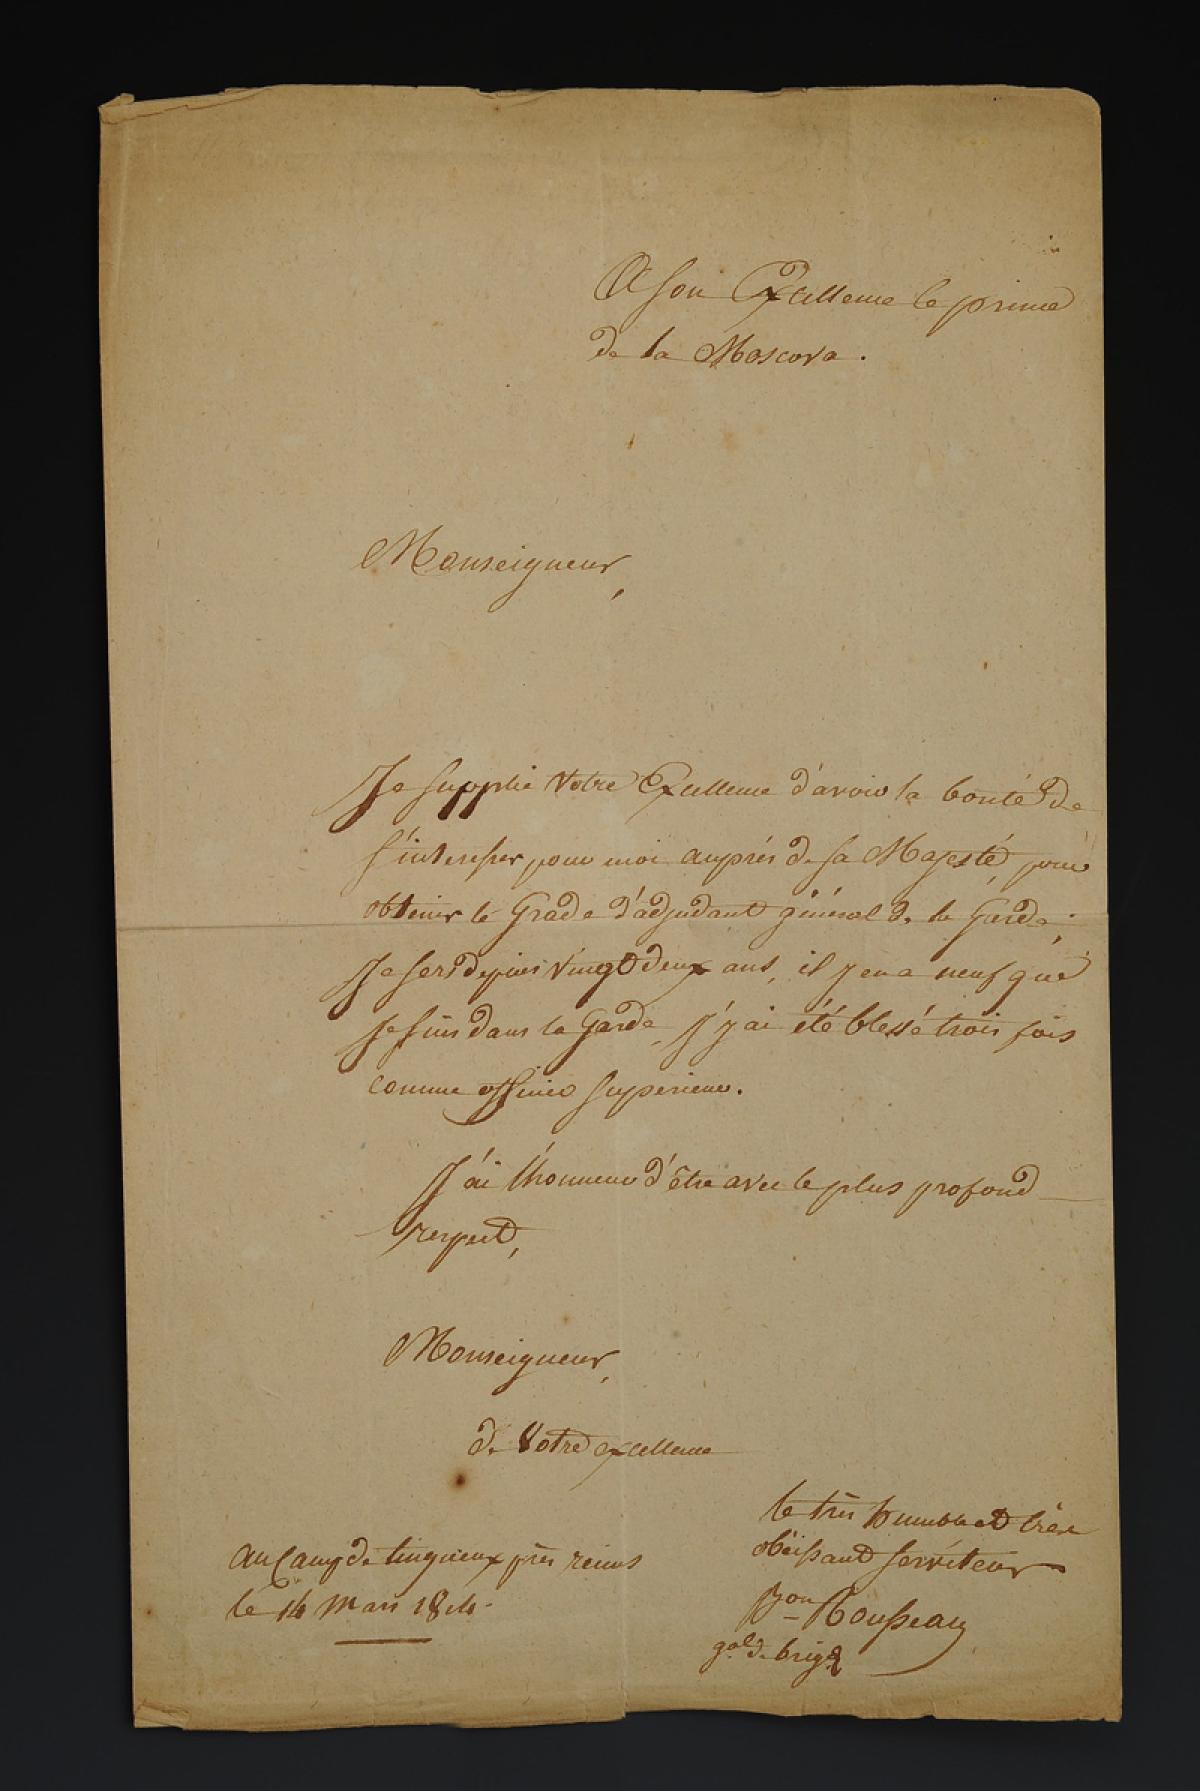 A Son Excellence le prince
de la Moscova.
Monseigneur,
Je Supplie Votre Excellence d'avoir la bonté de
S'interesser pour moi auprès de Sa Majesté, pour
obtenir le Grade d'adjudant général de la Garde;
Je sers depuis Vingt deux ans, il y en a neuf que
Je suis dans la Garde, J'y ai été blessé trois fois
comme officier Supérieur.
J'ai l'honneur d'être avec le plus profond
respect,
Monseigneur,
de Votre excellence
le très humble et très
obéissant serviteur
Bon Rousseau
gal de brigde
au Camp de tinqueux près reims
le 14 Mars 1814.